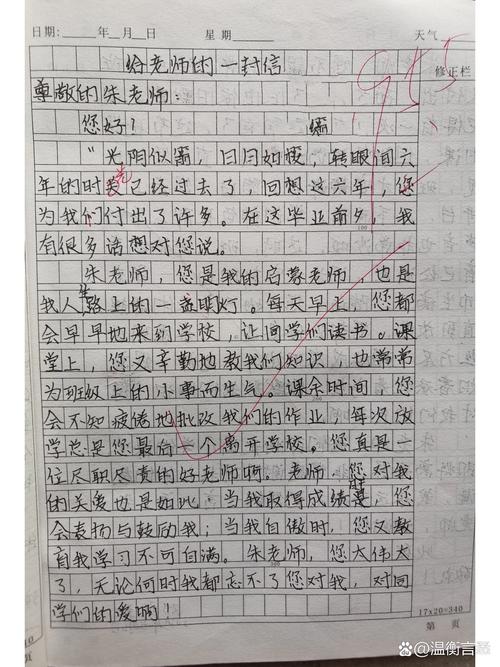 日期:____年__月__日 星期____ 天气____
给老师的一封信
修正栏
尊敬的朱老师:
您好!
"光阴似箭,日月如梭",转眼间六
年的时光已经过去了,回想这六年,您
为我们付出了许多。在这毕业前夕,我
有很多话想对您说。
朱老师,您是我的启蒙老师,也是
我人生路上的一盏明灯。每天早上,您都
会早早地来到学校,让同学们读书。课
堂上,您又辛勤地教我们知识,也常常
为班级上的小事而生气。课余时间,您
会不知疲倦地批改我们的作业,每次放
学总是您最后一个离开学校。您真是一
位尽职尽责的好老师啊。老师,您对我
的关爱也是如此,当我取得成绩时,您
会表扬与鼓励我;当我自傲时,您又教
育我学习不可自满。朱老师,您太伟大
了,无论何时我都忘不了您对我,对同
学们的爱啊!
17×20=340
第 页
温衡言